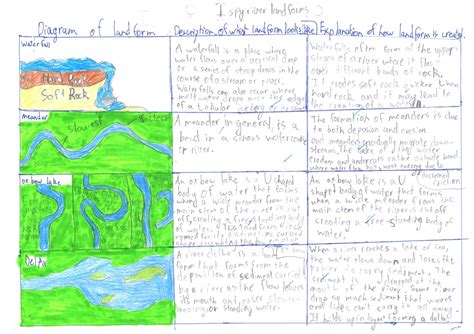 I spy river landforms
Diagram of landform
Description of what landform looks like
Explanation of how landform is created.
waterfall
Hard Rock
Soft Rock
A waterfall is a place where
water flows over a vertical drop
or a series of steep drops in the
course of a stream or river.
Waterfalls also occur where
melt water drops over the edge
of a tabular iceberg or
Waterfalls often form at the upper
stages of a river where it flows
over different bands of rock.
soft rock quicker than
hard rock and it may lead to
the creation of a waterfall
meander
slowest
faster
A meander in general, is a
bend in a sinuous watercourse
or river.
The formation of meanders is due
to both deposition and erosion
and meanders gradually migrate down
stream. The force of the water
erodes and undercuts on the outside bend
where water flow has most
oxbow lake
An oxbow lake is a U shaped
body of water that forms
when a wide meander from the
main stem of the river
creating a free-standing body
of water. This landform is
named for its
An oxbow lake is a U
shaped body of water that forms
when a wide meander from the
main stem of the river is cutoff
creating a free-standing body
of water.
Delta
A river delta is a
form that forms from the
deposition of sediment carried
by a river as the flow leaves
its mouth and enters slower-
moving or
When a river reaches a lake or sea,
the water slows down and loses the
power to carry sediment. The
sediment is dropped at the
mouth of the river. Some rivers
drop so much sediment that waves
and tides can't carry it all away.
It builds up in layers forming a delta.